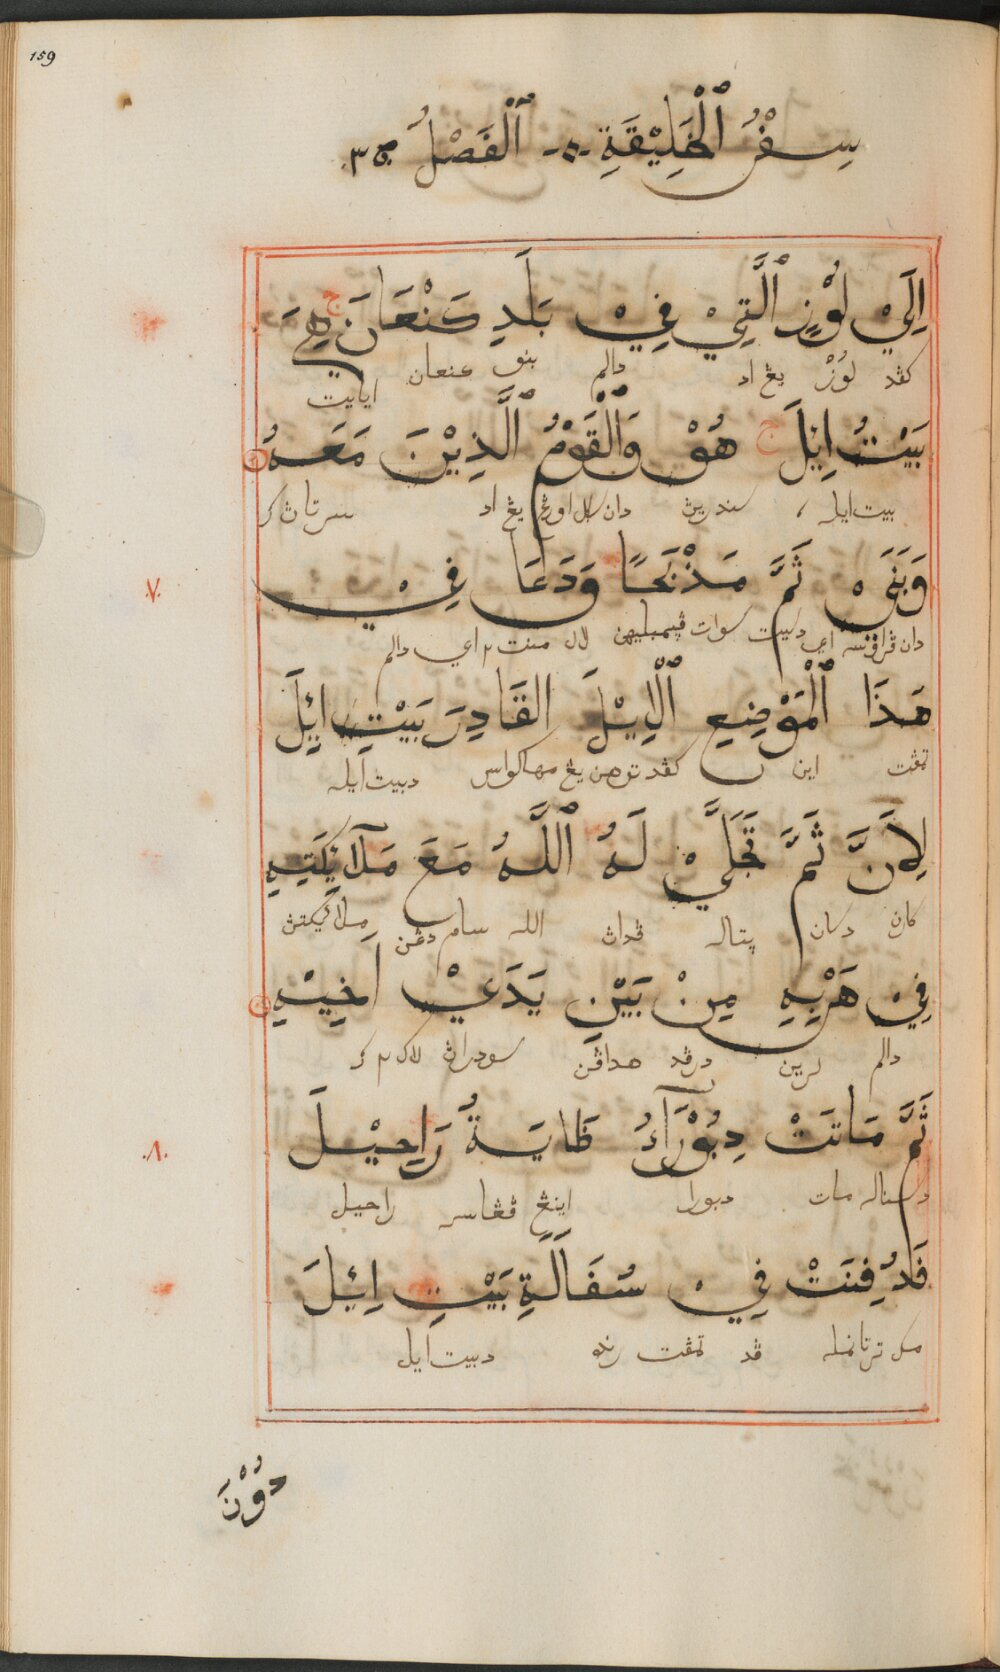 159
سِفْرُ ٱلْخَلِيْقَةِ -٥- ٱلْفَصْلُ ٣٥
اِلَيْ لُوْزٍ ٱلَّتِيْ فِيْ بَلَدِ كَنْعَانَ ج هِيَ
كڤد لوُزْ يڠ اد دالم بنو كنعان ايايت
بَيْتُ اِئِلَ ج هُوَ وَٱلْقَوْمُ ٱلَّذِيْنَ مَعَهُ
بيت ايله ، سنديرين دان يڠ اد سرتاڽ
وَبَنَيْ ثَمَّ مَذْبَحًا وَدَعَا فِيْ
٧
دان اي دسيت سوات ڤيمبليهن لال منت٢ اي دالم
هَذَا ٱلْمَوْضِعِ ٱلْاِيْلَ القَادِرَ بَيْتِ ائِلَ
تمڤت اين كڤد توهن يڠ مهاكواس دبيت ايله
لِاَنَّ ثَمَّ تَجَلَّيْ لَهُ ٱللَّهُ مَعَ مَلَآئِكَتِهِ
كارن دسان ڽتاله ڤداڽ الله سام دڠن ملائيكتڽ
فِيْ هَرْبِهِ مِنْ بَيْنِ يَدَيْ اَخِيْهِ
دالم لرين درڤد هداڤن سودراڽ
ثَمَّ مَاتَتْ دِبُوْرَآءُ ظَايَةُ رَاحِيْلَ
٨
دسناله مات دبورا اينڠ ڤڠاسه راحيل
فَدُفِنَتْ فِيْ سُفَالَةِ بَيْتِ اِئِلَ
مك ترتانمله ڤد تمڤت رنده دبيت ايل
دُوْنَ